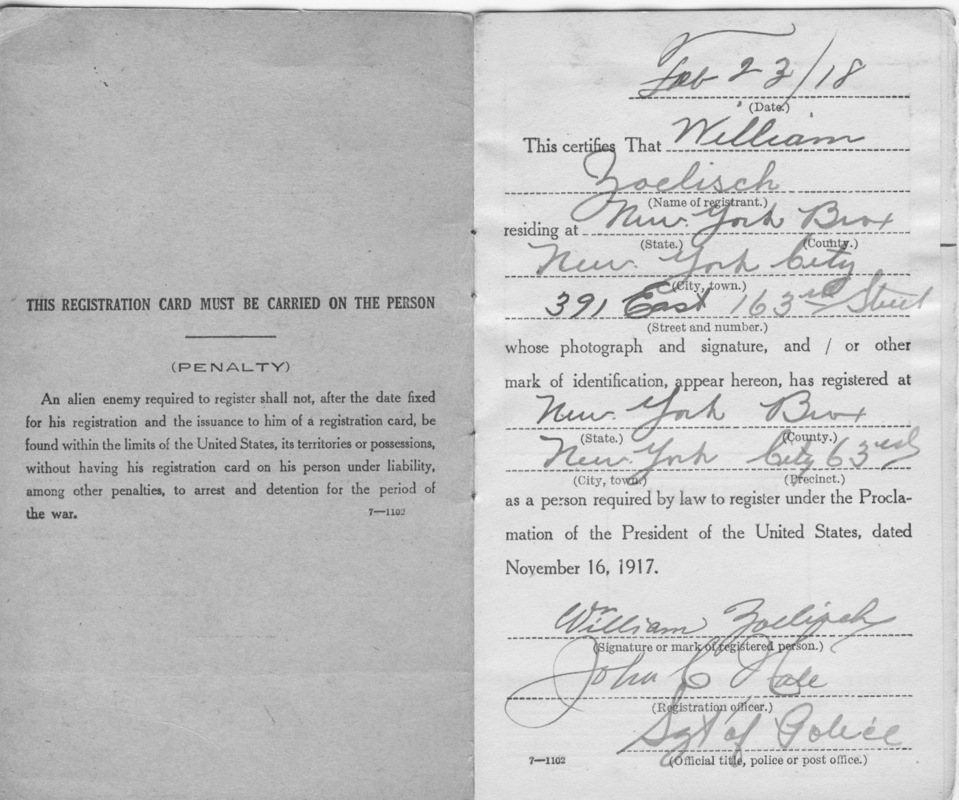 THIS REGISTRATION CARD MUST BE CARRIED ON THE PERSON
(PENALTY)
An alien enemy required to register shall not, after the date fixed
for his registration and the issuance to him of a registration card, be
found within the limits of the United States, its territories or possessions,
without having his registration card on his person under liability,
among other penalties, to arrest and detention for the period of
the war.
7—1102
Feb 23/18
(Date.)
This certifies That William
Zoelisch
(Name of registrant.)
residing at New York Brox
(State.) (County.)
New York City
(City, town.)
391 East 163rd Street
(Street and number.)
whose photograph and signature, and / or other
mark of identification, appear hereon, has registered at
New York Brox
(State.) (County.)
New York City 63rd
(City, town.) (Precinct.)
as a person required by law to register under the Procla-
mation of the President of the United States, dated
November 16, 1917.
William Zoelisch
(Signature or mark of registered person.)
John C Hale
(Registration officer.)
Sgt of Police
7—1102 (Official title, police or post office.)